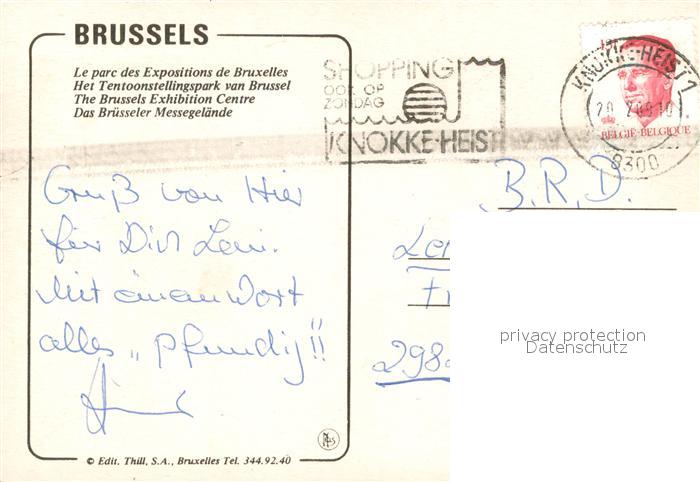 BRUSSELS
Le parc des Expositions de Bruxelles
Het Tentoonstellingspark van Brussel
The Brussels Exhibition Centre
Das Brüsseler Messegelände
SHOPPING
OOK OP
ZONDAG
KNOKKE-HEIST
KNOKKE-HEIST 1
8300
BELGIE-BELGIQUE
Gruß von Hier
für Dich Leni.
Mit einen Wort
alles „pfundig"!!
B.R.D.
298
privacy protection
Datenschutz
© Edit. Thill, S.A., Bruxelles Tel. 344.92.40